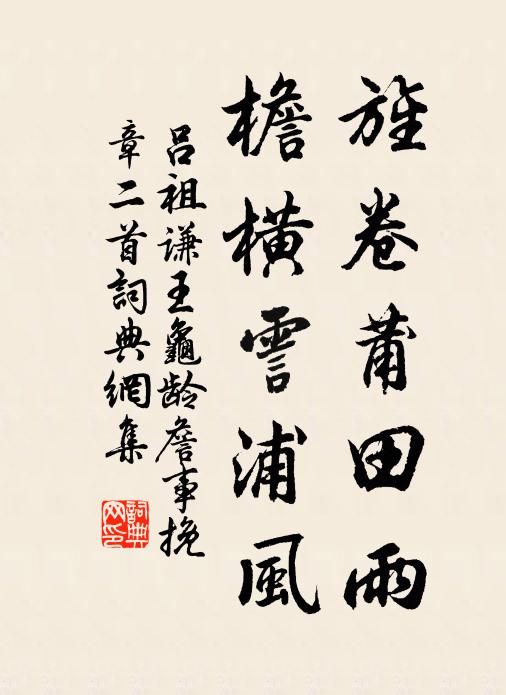 旌卷莆田雨
檐橫霅浦風
吕祖谦王龜龄詹事挽
章二首詞典網集
詞典
网印